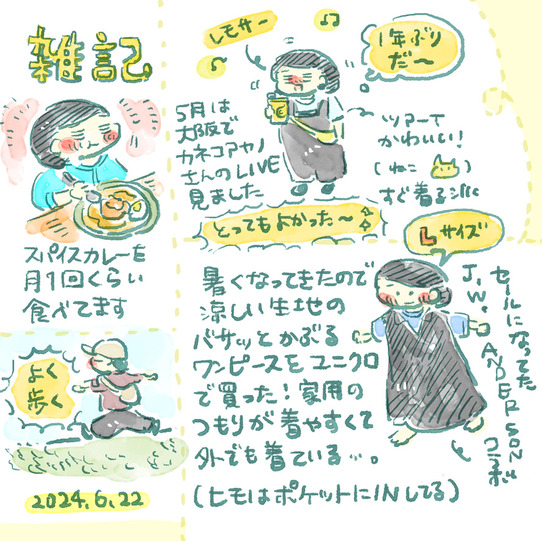 雑記
スパイスカレーを
月1回くらい
食べてます
よく
歩く
2024.6.22
レモサー
1年ぶり
だ〜
5月は
大阪で
カネコアヤノ
さんのLIVE
見ました
ツアーT
かわいい!
(ねこ)
すぐ着る
とってもよかった〜
Lサイズ
暑くなってきたので
涼しい生地の
バサッとかぶる
ワンピースをユニクロ
で買った!家用の
つもりが着やすくて
外でも着ている…。
(ヒモはポケットにINしてる)
セールになってた
J.W.ANDERSON
コラボ